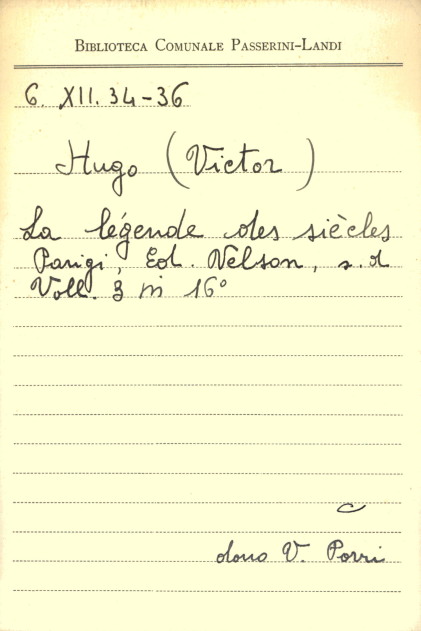 BIBLIOTECA COMUNALE PASSERINI-LANDI
6. XII. 34-36
Hugo (Victor)
La légende des siècles
Parigi, Ed. Nelson, s. d
Voll. 3 in 16°
dono V. Porri